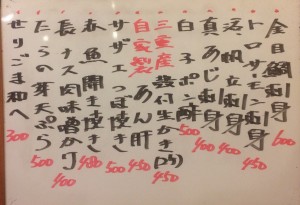 金目鯛刺身 600
トロサーモン刺身
活帆立刺身 400
真あじ刺身 400
白子ポン酢 500
三重産殻付生かき(2ヶ) 450
自家製あん肝 450
サザエつぼ焼き 500
赤魚開き焼き 480
長ナス肉味噌かけ 400
たらの芽天ぷら 500
せりごま和へ 300